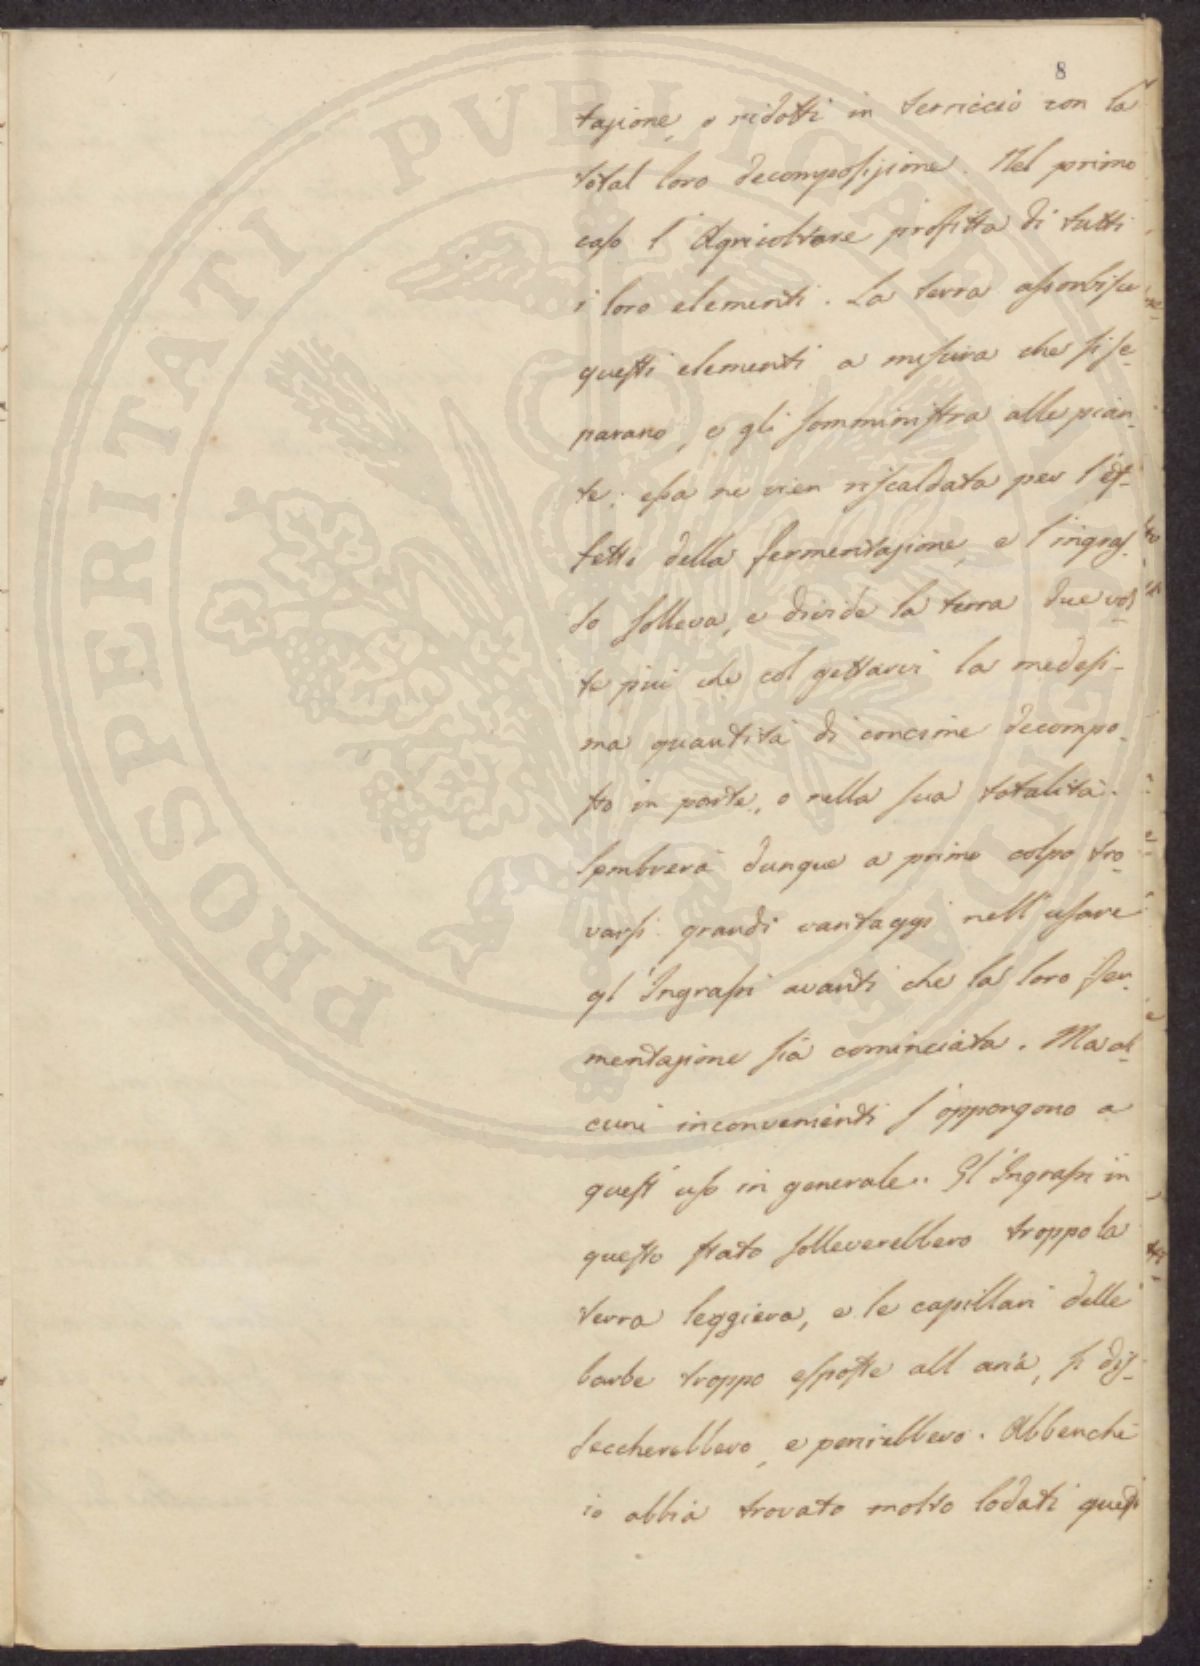 8
tazione, o ridotti in terriccio con la
total loro decomposizione. Nel primo
caso l'Agricoltore profitta di tutti
i loro elementi. La terra assorbisce
questi elementi a misura che si se-
parano, e gli somministra alle pian-
te; essa ne vien riscaldata per l'ef-
fetto della fermentazione, e l'ingras-
so solleva, e divide la terra due vol-
te più che col gettarvi la medesi-
ma quantità di concime decompo-
sto in parte, o nella sua totalità.
Sembrerà dunque a primo colpo tro-
varsi grandi vantaggi nell'usare
gl'Ingrassi avanti che la loro fer-
mentazione sia cominciata. Ma al-
cuni inconvenienti s'oppongono a
quest'uso in generale. Gl'Ingrassi in
questo stato solleverebbero troppo la
terra leggiera, e le capillari delle
barbe troppo esposte all'aria, si dis-
seccherebbero, e perirebbero. Abbenchè
io abbia trovato molto lodati questi
PROSPERITATI PVBLICAE AVGENDAE